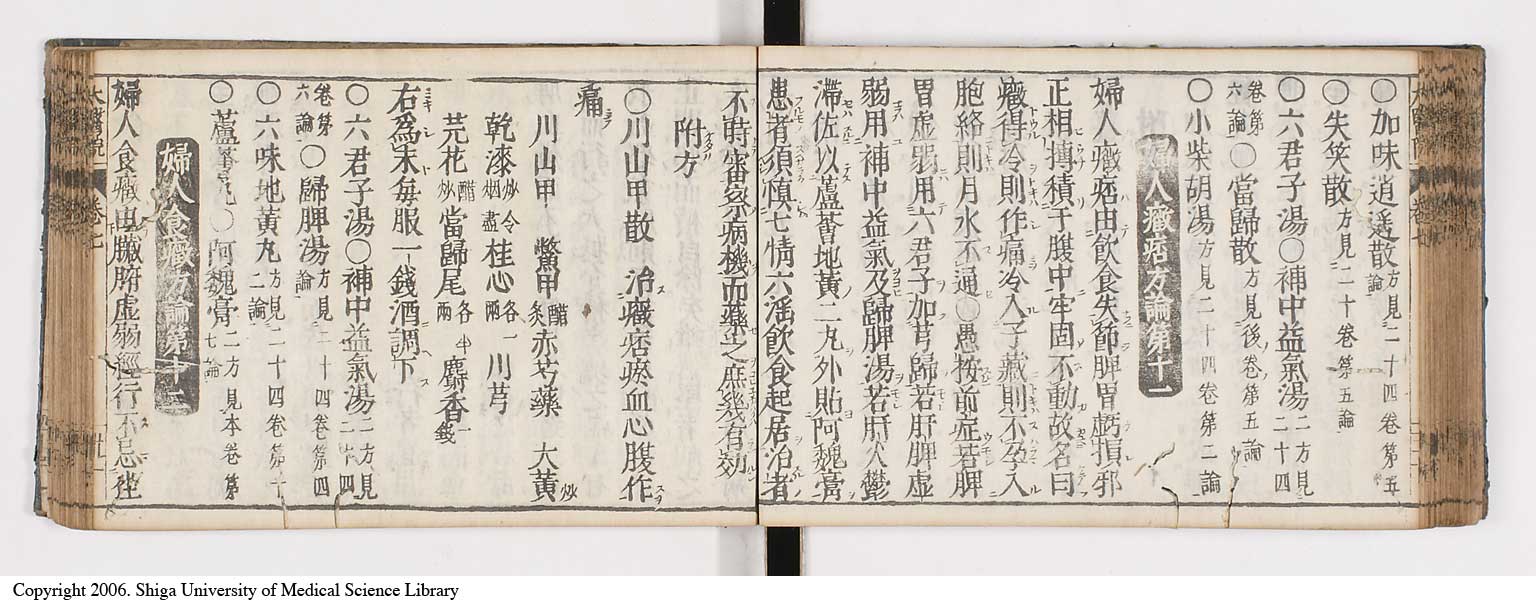 ○加味逍遙散方見二十四卷第五論
○失笑散方見二十卷第五論
○六君子湯○補中益氣湯二方見二十四
卷第六論○當歸散方見後卷第五論
○小柴胡湯方見二十四卷第二論
婦人癥痞方論第十一
婦人癥痞由飲食失節脾胃虧損邪
正相摶積于腹中牢固不動故名曰
癥得冷則作痛冷入子藏則不孕入
胞絡則月水不通○愚按前症若脾
胃虛弱用六君子加芎歸若肝脾虛
弱用補中益氣及歸脾湯若肝火鬱
滯佐以蘆薈地黃二丸外貼阿魏膏
患者須慎七情六淫飲食起居治者
不時審察病機而藥之庶幾有効
附方
○川山甲散 治癥痞瘀血心腹作
痛
川山甲 鱉甲醋炙 赤芍藥 大黃炒
乾漆炒令烟盡 桂心各一兩 川芎
芫花醋炒 當歸尾各半兩 麝香一錢
右爲末每服一錢酒調下
○六君子湯○補中益氣湯二方見二十四
卷第六論○歸脾湯方見二十四卷第四論
○六味地黃丸方見二十四卷第十二論
○蘆薈丸○阿魏膏二方見本卷第七論
婦人食癥方論第十二
婦人食癥由臟腑虛弱經行不忌
Copyright 2006. Shiga University of Medical Science Library